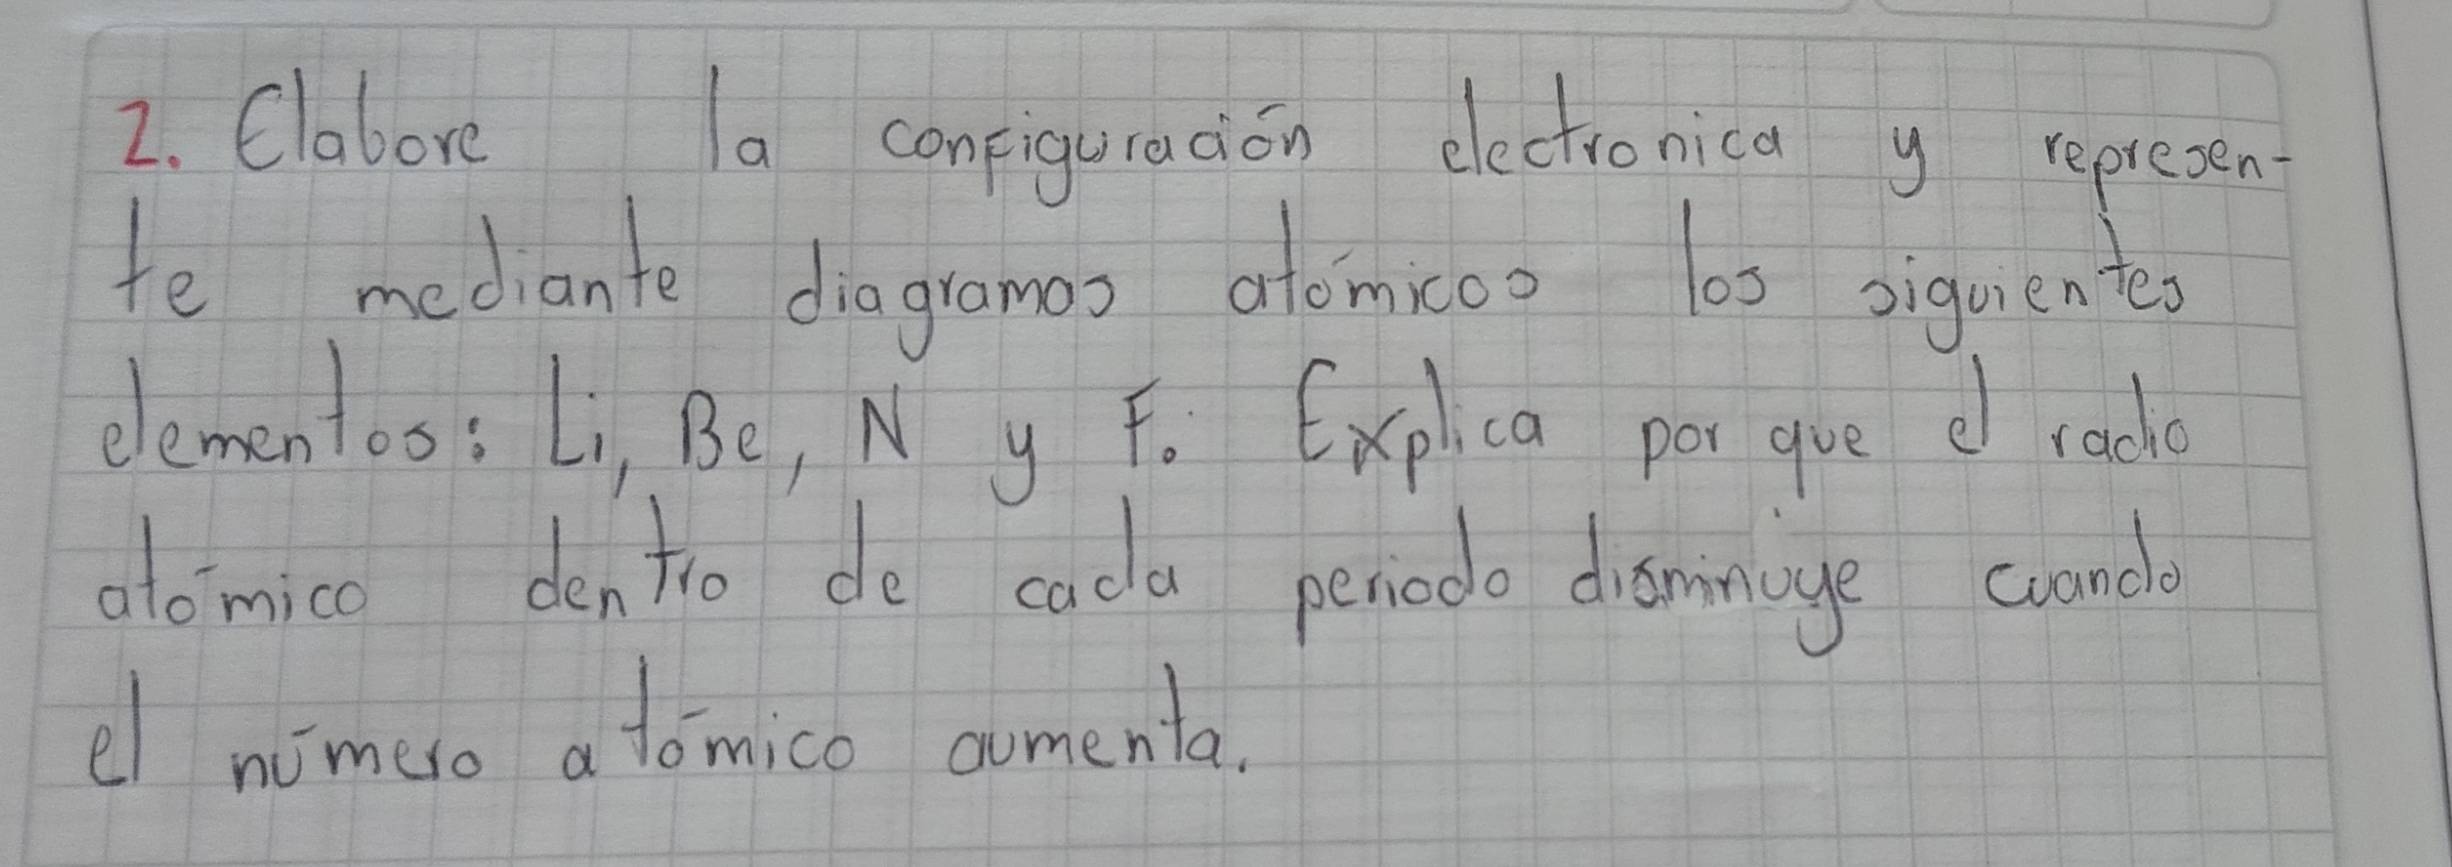 2. Elabore la configuración electronica y represen-
te mediante diagramas atómicos los siguientes
elementos: Li, Be, N y F. Explica por que el radio
atómico dentro de cada periodo disminuye cuando
el número atómico aumenta.